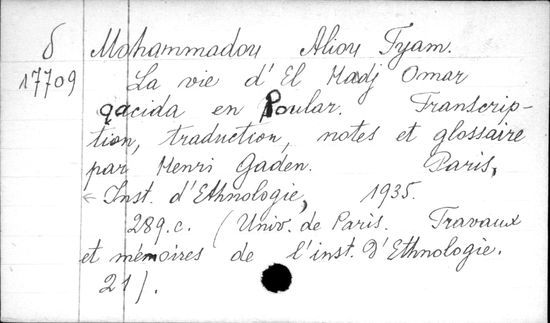 б Mohammadou Aliou Tyam.
17709 La vie d'El Hadj Omar
qacida en Poular. Transcrip-
tion, traduction, notes et glossaire
par Henri Gaden. Paris,
Inst. d'Ethnologie, 1935.
289 c. (Univ. de Paris. Travaux
et mémoires de l'inst. D'Ethnologie.
21).